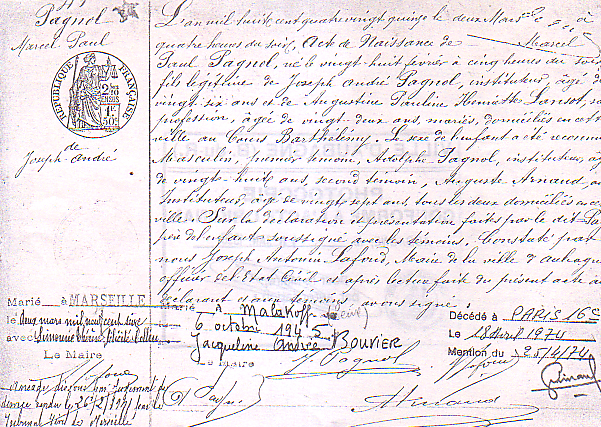 Pagnol
Marcel Paul
RÉPUBLIQUE FRANÇAISE
de
Joseph André
L'an mil huit cent quatre vingt quinze le deux Mars
à quatre heures du soir, Acte de Naissance de Marcel
Paul Pagnol, né le vingt-huit février à cinq heures du soir
fils légitime de Joseph André Pagnol, instituteur, âgé de
vingt-six ans et de Augustine Pauline Henriette Lansot, sans
profession, âgée de vingt-deux ans, mariés, domiciliés en cette
ville au Cours Barthélemy. Le sexe de l'enfant a été reconnu
Masculin, premier témoin, Adolphe Pagnol, instituteur, âgé
de vingt-huit ans, second témoin, Auguste Arnaud,
Instituteur, âgé de vingt sept ans, tous les deux domiciliés en cette
ville. Sur la déclaration et présentation faites par le dit
père de l'enfant soussigné avec les témoins. Constaté par
nous Joseph Antonin Lafond, Maire de la ville d'aubagne
officier de l'Etat Civil et après lecture faite du présent acte au
déclarant et aux témoins avons signé.
Marié à MARSEILLE
le deux mars mil neuf cent seize
avec Simonne
Le Maire
Marié à Malakoff
6 octobre 1945
Jacqueline Andrée BOUVIER
Le Maire
Décédé à PARIS 16e
Le 18 Avril 1974
Mention du 25/4/74
J. Pagnol
Lafond
A. Pagnol
Arnaud
Guinard